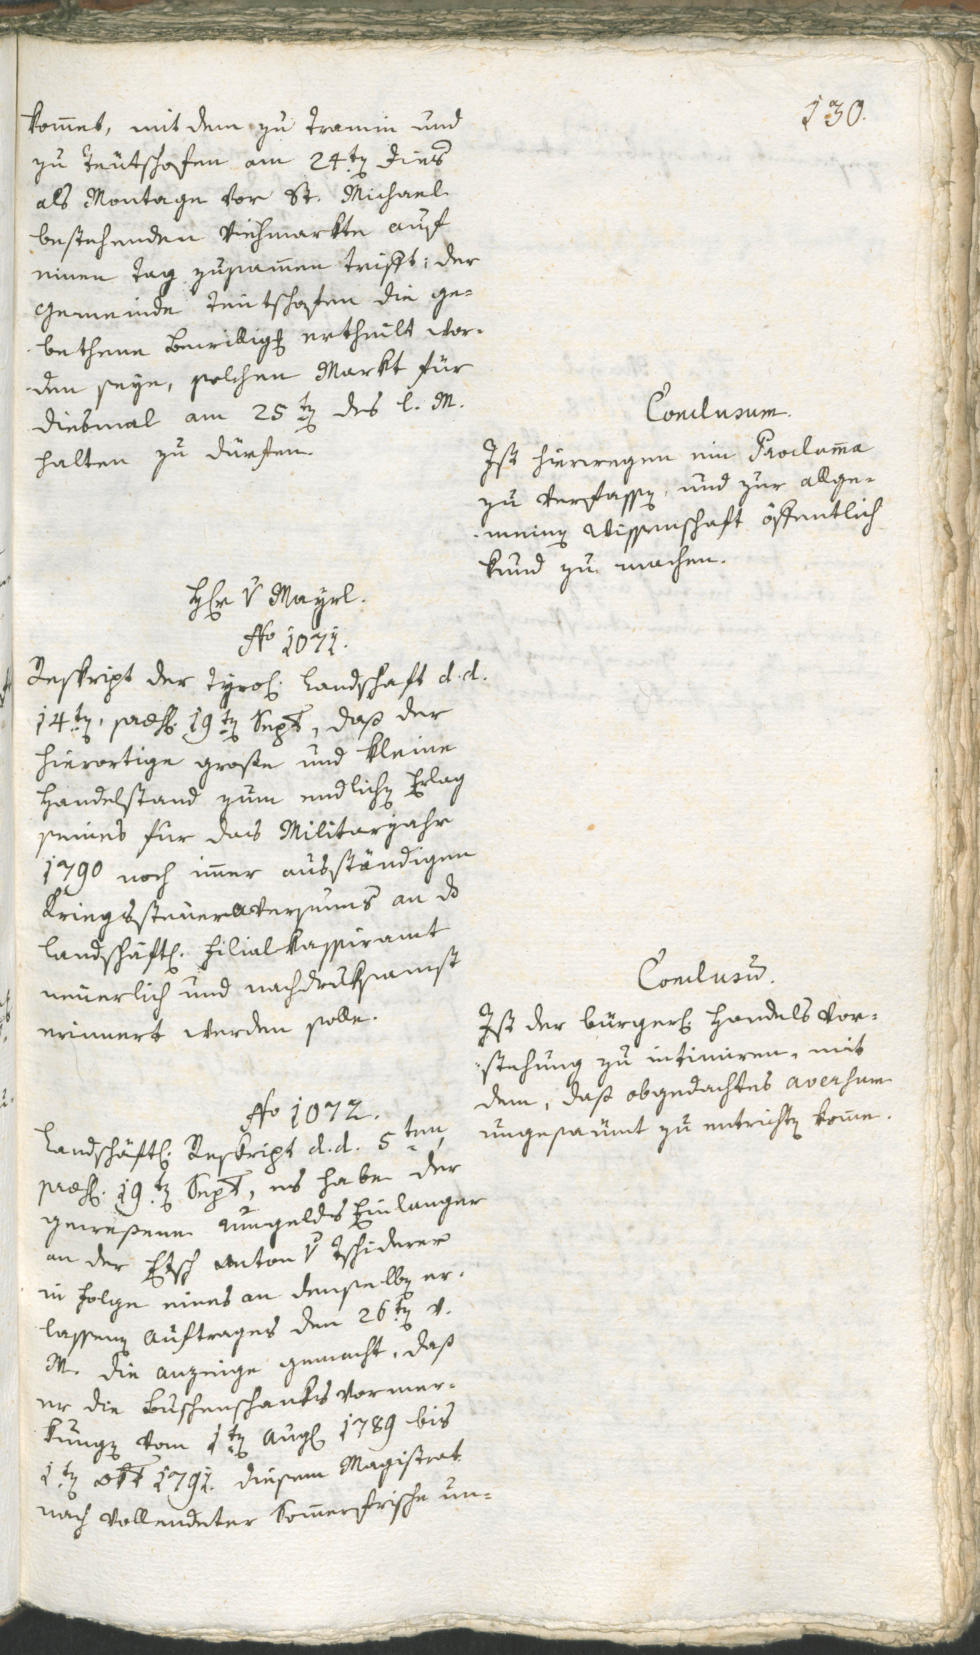 130.
kom̅et, mit dem zu Tramin und
zu Teutschofen am 24.ten dies
als Montage vor St. Michael
bestehenden Viehmarkte auf
einen Tag zusam̅en trifft; der
Gemeinde Teutschofen die ge-
bethene Bewillig. ertheilt wor-
den seye, solchen Markt für
diesmal am 25ten des l. M.
halten zu dürfen.
Conclusum.
Ist hierwegen ein Proclam̅a
zu verfassen, und zur allge-
meinen Wissenschaft öffentlich
kund zu machen.
Hr. v Mayrl.
No 1071.
Reskript der Tyrol. Landschaft d. d.
14.ten, præs. 19ten Sept., daß der
hierortige große und kleine
Handelstand zum endlichen Erlag
seines für das Militarjahr
1790 noch im̅er ausständigen
Kriegssteueraversums an do
landschäftl. Filialkassieramt
neuerlich und nachdruksamst
erinnert werden solle.
Conclusum̅.
Ist der bürgerl. Handels Vor-
stehung zu intimiren, mit
dem, daß obgedachtes aversum
ungesäumt zu entrichten kom̅e.
No 1072.
Landschäftl. Reskript d. d. 5ten,
præs. 19.ten Sept., es habe der
gewesene Umgelds Einlanger
an der Etsch Anton v Tschiderer
in Folge eines an denselben er-
lassenen Auftrages den 26ten v.
M. die Anzeige gemacht, daß
er die Buschenschanks Vormer-
kungen vom 1ten Aug. 1789 bis
1ten Okt. 1791. diesem Magistrat
nach vollendeter Som̅erfrische un-